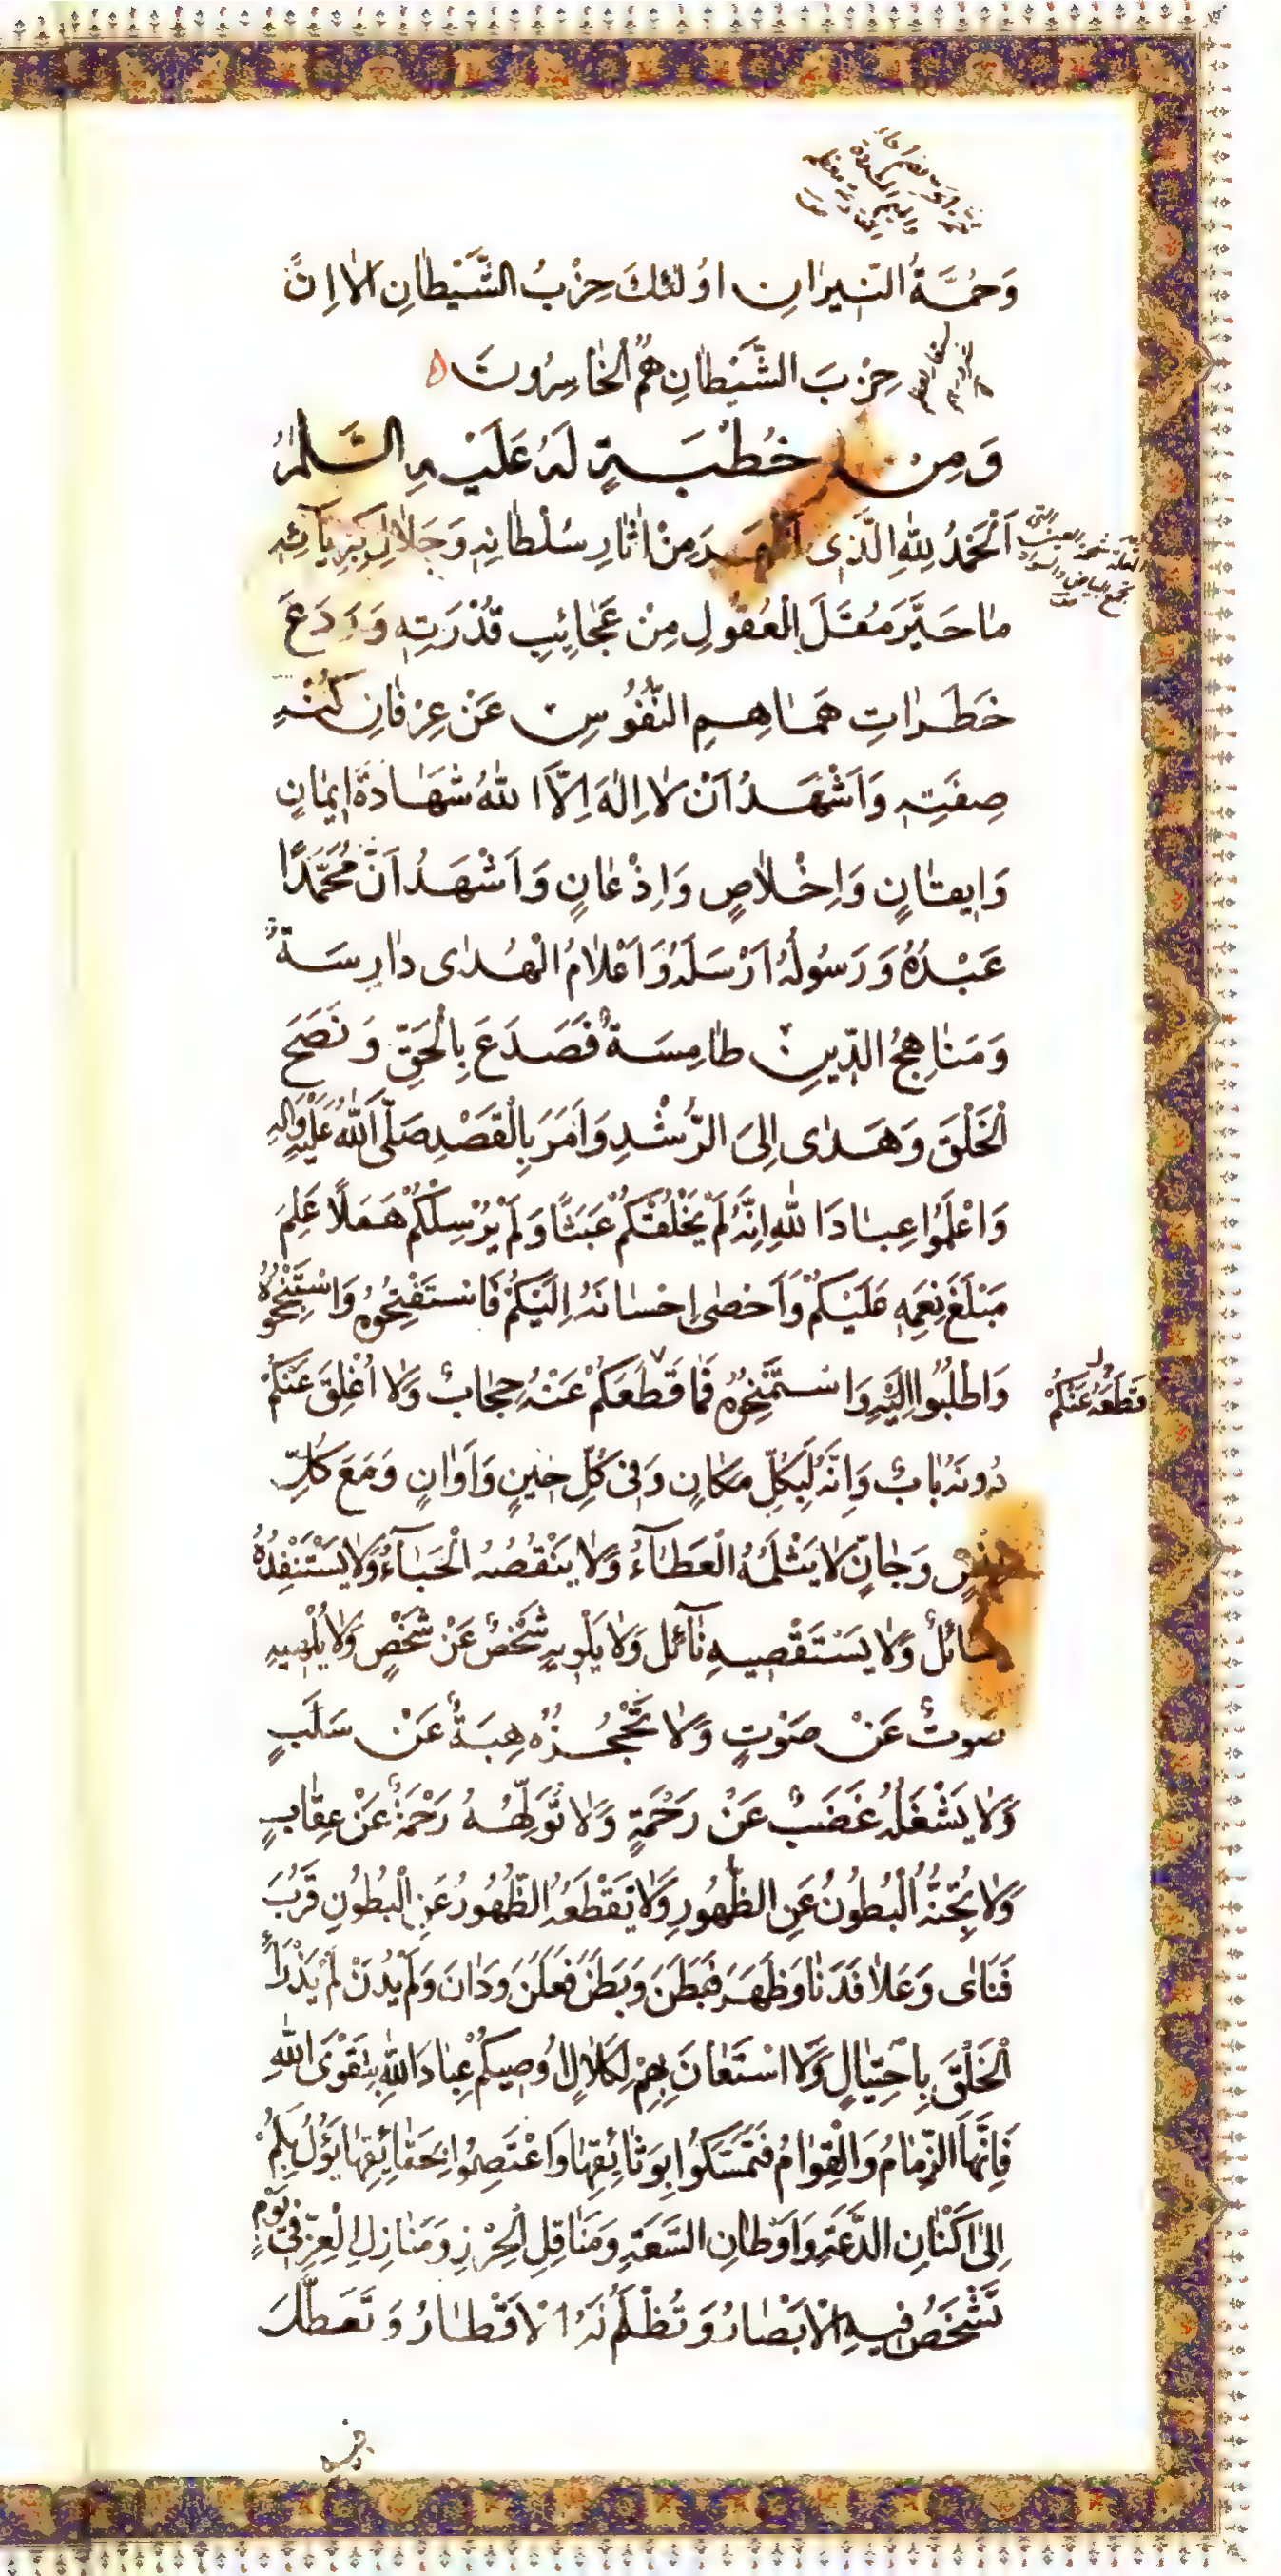 وَحُمَّةُ النّيرٰانِ اوُلٰئكَ حِزْبُ الشَّيْطٰانِ اَلٰا اِنَّ
حِزْبَ الشَّيْطٰانِ هُمُ الْخٰاسِرُونَ
وَمِنْ خُطْبَةٍ لَهُ عَلَيْهِ السَّلٰمُ
اَلْحَمْدُ لِلّٰهِ الَّذى اَظْهَرَ مِنْ اٰثٰارِ سُلْطٰانِهِ وَجَلٰالِ كِبْرِيٰآئِهِ
مٰا حَيَّرَ مُقَلَ الْعُقُولِ مِنْ عَجٰائِبِ قُدْرَتِهِ وَرَدَعَ
خَطَرٰاتِ هَمٰاهِمِ النُّفُوسِ عَنْ عِرْفٰانِ كُنْهِ
صِفَتِهِ وَاَشْهَدُ اَنْ لٰا اِلٰهَ اِلَّا اللّٰهُ شَهٰادَةَ ايمٰانٍ
وَايقٰانٍ وَاِخْلٰاصٍ وَاِذْعٰانٍ وَاَشْهَدُ اَنَّ مُحَمَّدًا
عَبْدُهُ وَرَسُولُهُ اَرْسَلَهُ وَاَعْلٰامُ الْهُدٰى دٰارِسَةٌ
وَمَنٰاهِجُ الدّينِ طٰامِسَةٌ فَصَدَعَ بِالْحَقِّ وَنَصَحَ
الْخَلْقَ وَهَدٰى اِلىَ الرُّشْدِ وَاَمَرَ بِالْقَصْدِ صَلَّى اللّٰهُ عَلَيْهِ وَاٰلِهِ
وَاعْلَمُوا عِبٰادَ اللّٰهِ اِنَّهُ لَمْ يَخْلُقْكُمْ عَبَثًا وَلَمْ يُرْسِلْكُمْ هَمَلًا عَلِمَ
مَبْلَغَ نِعَمِهِ عَلَيْكُمْ وَاَحْصٰى اِحْسٰانَهُ اِلَيْكُمْ فَاسْتَفْتِحُوهُ وَاسْتَنْجِحُوهُ
وَاطْلُبُوا اِلَيْهِ وَاسْتَمْنِحُوهُ فَمٰا قَطَعَكُمْ عَنْهُ حِجٰابٌ وَلٰا اُغْلِقَ عَنْكُمْ
قَطَعَهُ عَنْكُمْ
دُونَهُ بٰابٌ وَاِنَّهُ لَبِكُلِّ مَكٰانٍ وَفى كُلِّ حينٍ وَاَوٰانٍ وَمَعَ كُلِّ
اِنْسٍ وَجٰانٍّ لٰا يَثْلِمُهُ الْعَطٰآءُ وَلٰا يَنْقُصُهُ الْحَبٰآءُ وَلٰا يَسْتَنْفِدُهُ
سٰائلٌ وَلٰا يَسْتَقْصيهِ نٰآئل وَلٰا يَلْويهِ شَخْصٌ عَنْ شَخْصٍ وَلٰا يُلْهيهِ
صَوتٌ عَنْ صَوْتٍ وَلٰا تَحْجُزُهُ هِبَةٌ عَنْ سَلَبٍ
وَلٰا يَشْغَلُهُ غَضَبٌ عَنْ رَحْمَةٍ وَلٰا تُوَلِّهُهُ رَحْمَةٌ عَنْ عِقٰابٍ
وَلٰا يُجِنُّهُ الْبُطُونُ عَنِ الظُّهُورِ وَلٰا يَقْطَعُهُ الظُّهُورُ عَنِ الْبُطُونِ قَرُبَ
فَنَاٰى وَعَلٰا فَدَنٰا وَظَهَرَ فَبَطَنَ وَبَطَنَ فَعَلَنَ وَدٰانَ وَلَمْ يُدَنْ لَمْ يَذْرَاِ
الْخَلْقَ بِاحْتِيٰالٍ وَلَا اسْتَعٰانَ بِهِمْ لِكَلٰالٍ اُوصيكُمْ عِبٰادَ اللّٰهِ بِتَقْوَى اللّٰهِ
فَاِنَّهَا الزِّمٰامُ وَالْقِوٰامُ فَتَمَسَّكُوا بِوَثٰائِقِهٰا وَاعْتَصِمُوا بِحَقٰائِقِهٰا يَؤُلْ بِكُمْ
اِلىٰ اَكْنٰانِ الدَّعَةِ وَاَوْطٰانِ السَّعَةِ وَمَنٰاقِلِ الْحِرْزِ وَمَنٰازِلِ الْعِزِّ فى يَوْمٍ
تَشْخَصُ فيهِ الْاَبْصٰارُ وَتُظْلَمُ لَهُ الْاَقْطٰارُ وَتُعَطَّلُ